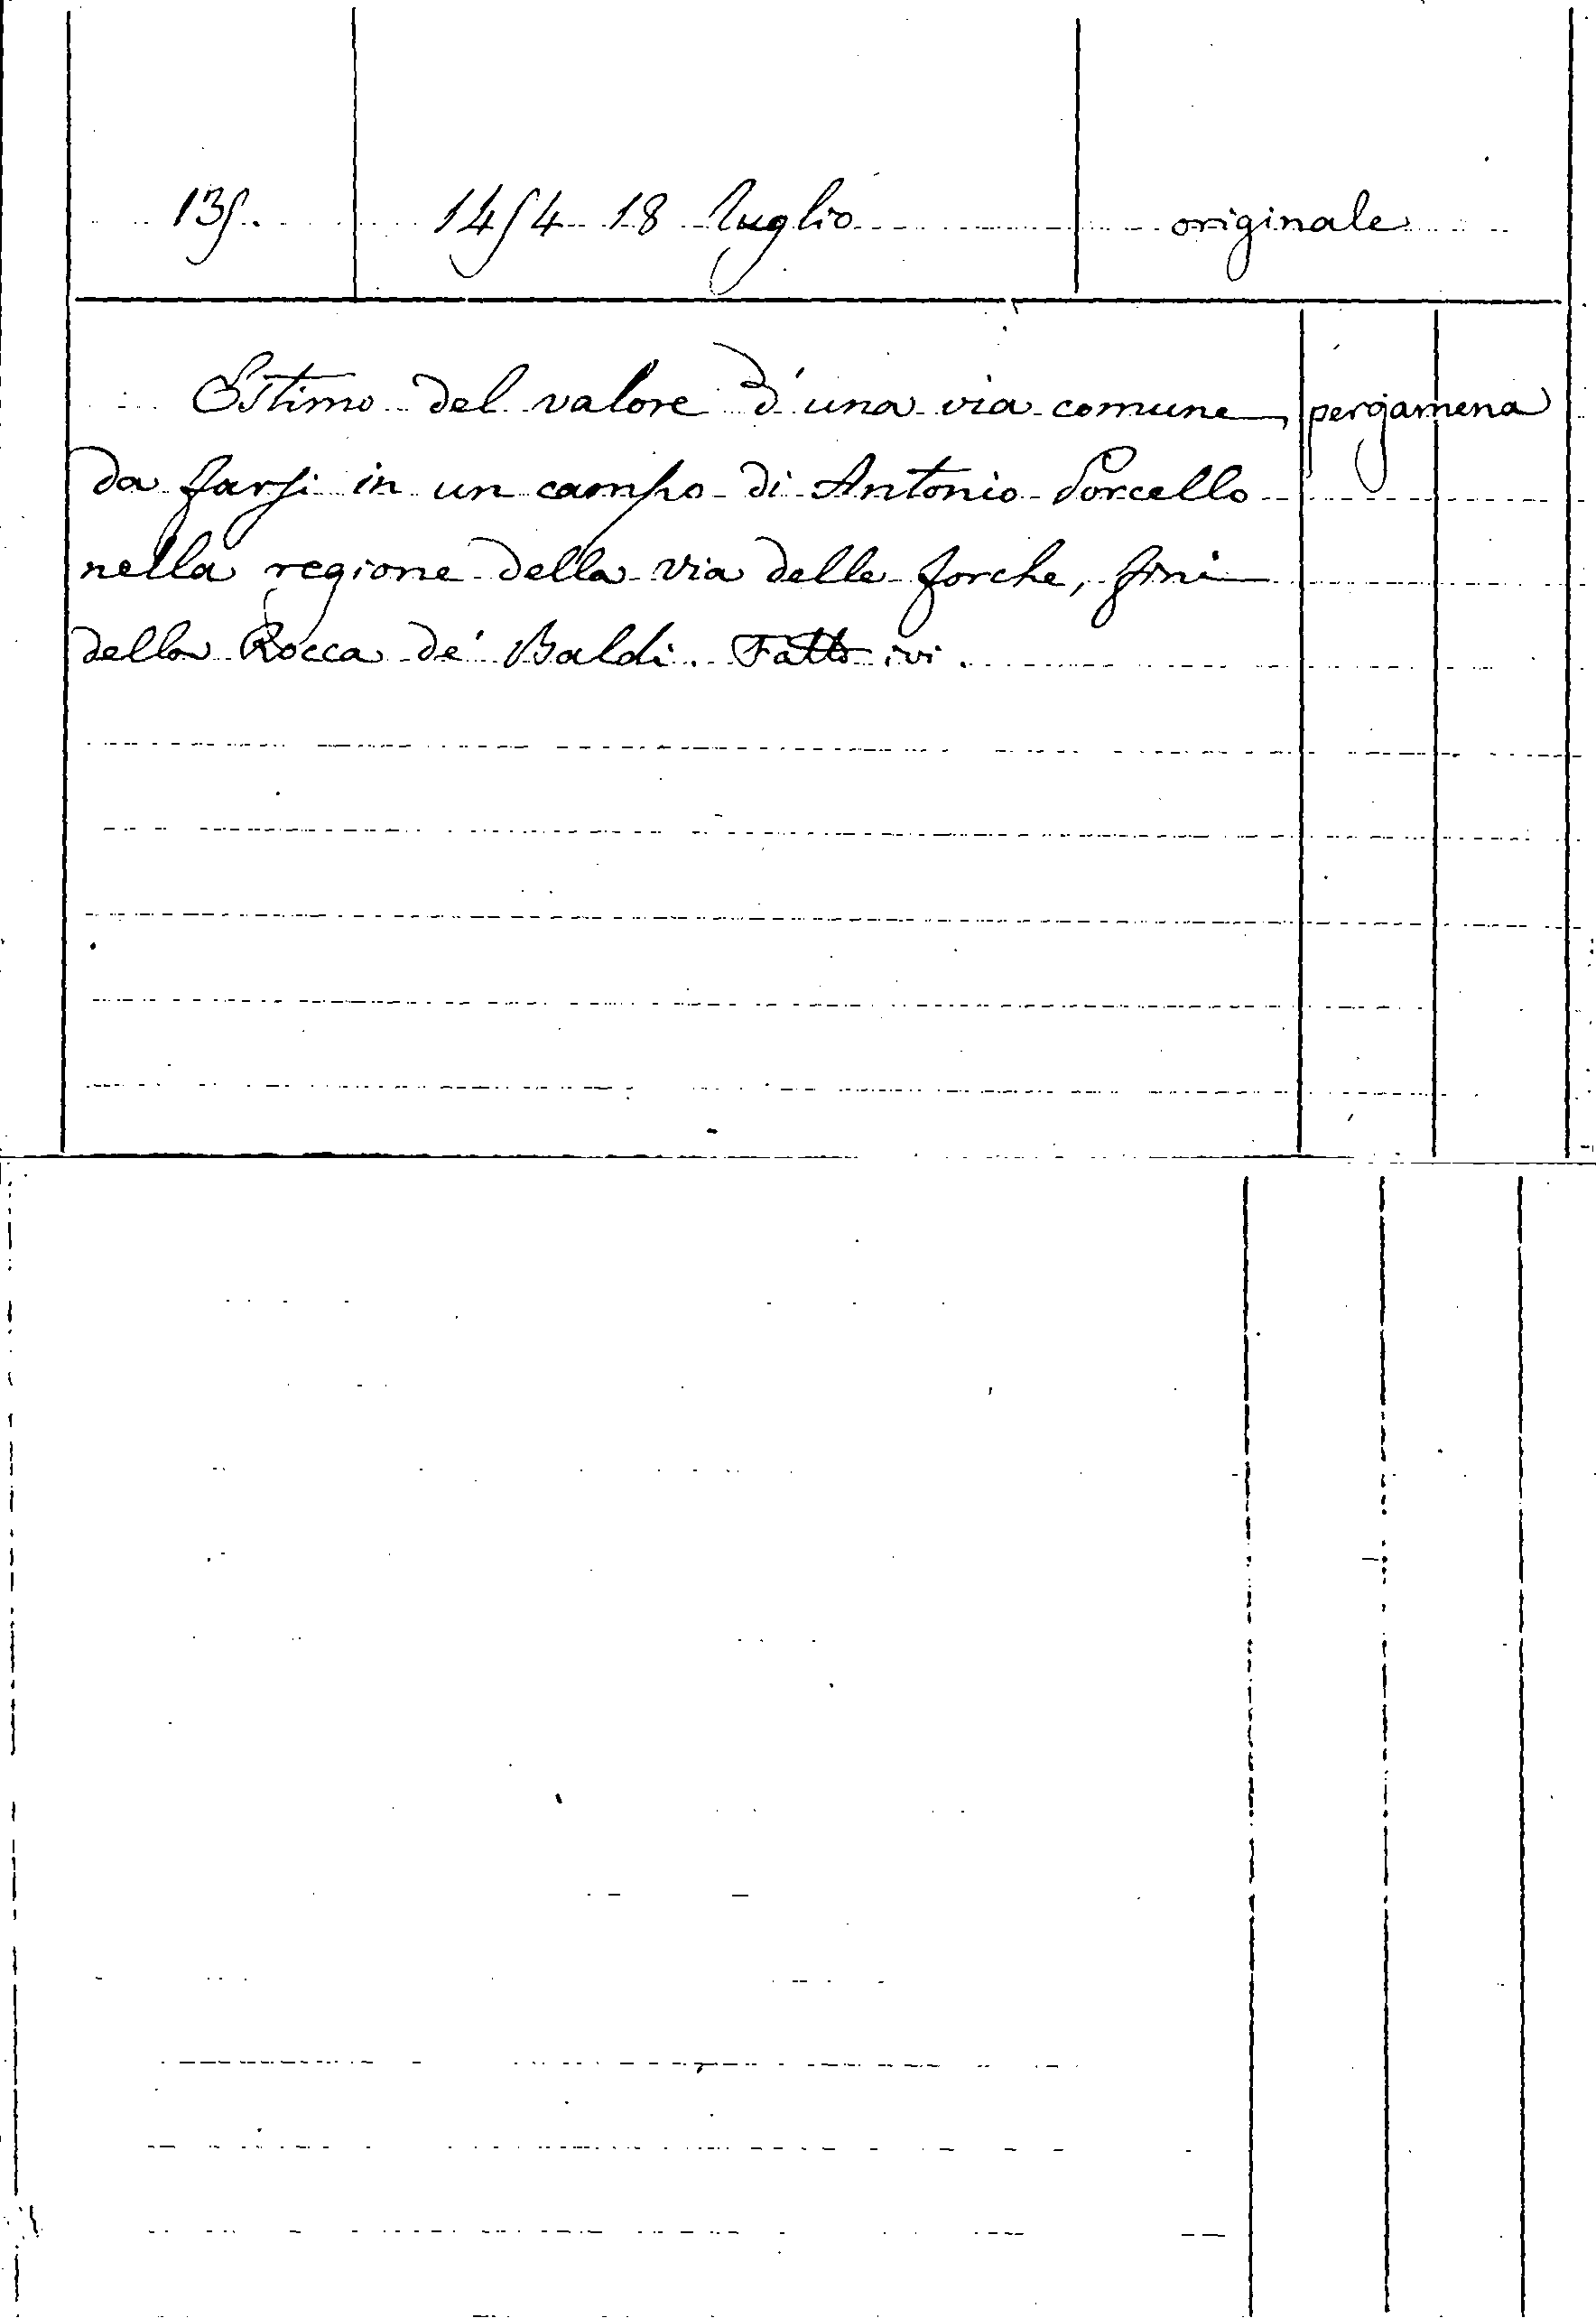 135. 1454 18 Luglio originale
Estimo del valore d'una via comune pergamena
da farsi in un campo di Antonio Porcello
nella regione della via delle forche, fini
della Rocca de' Baldi. Fatto ivi.